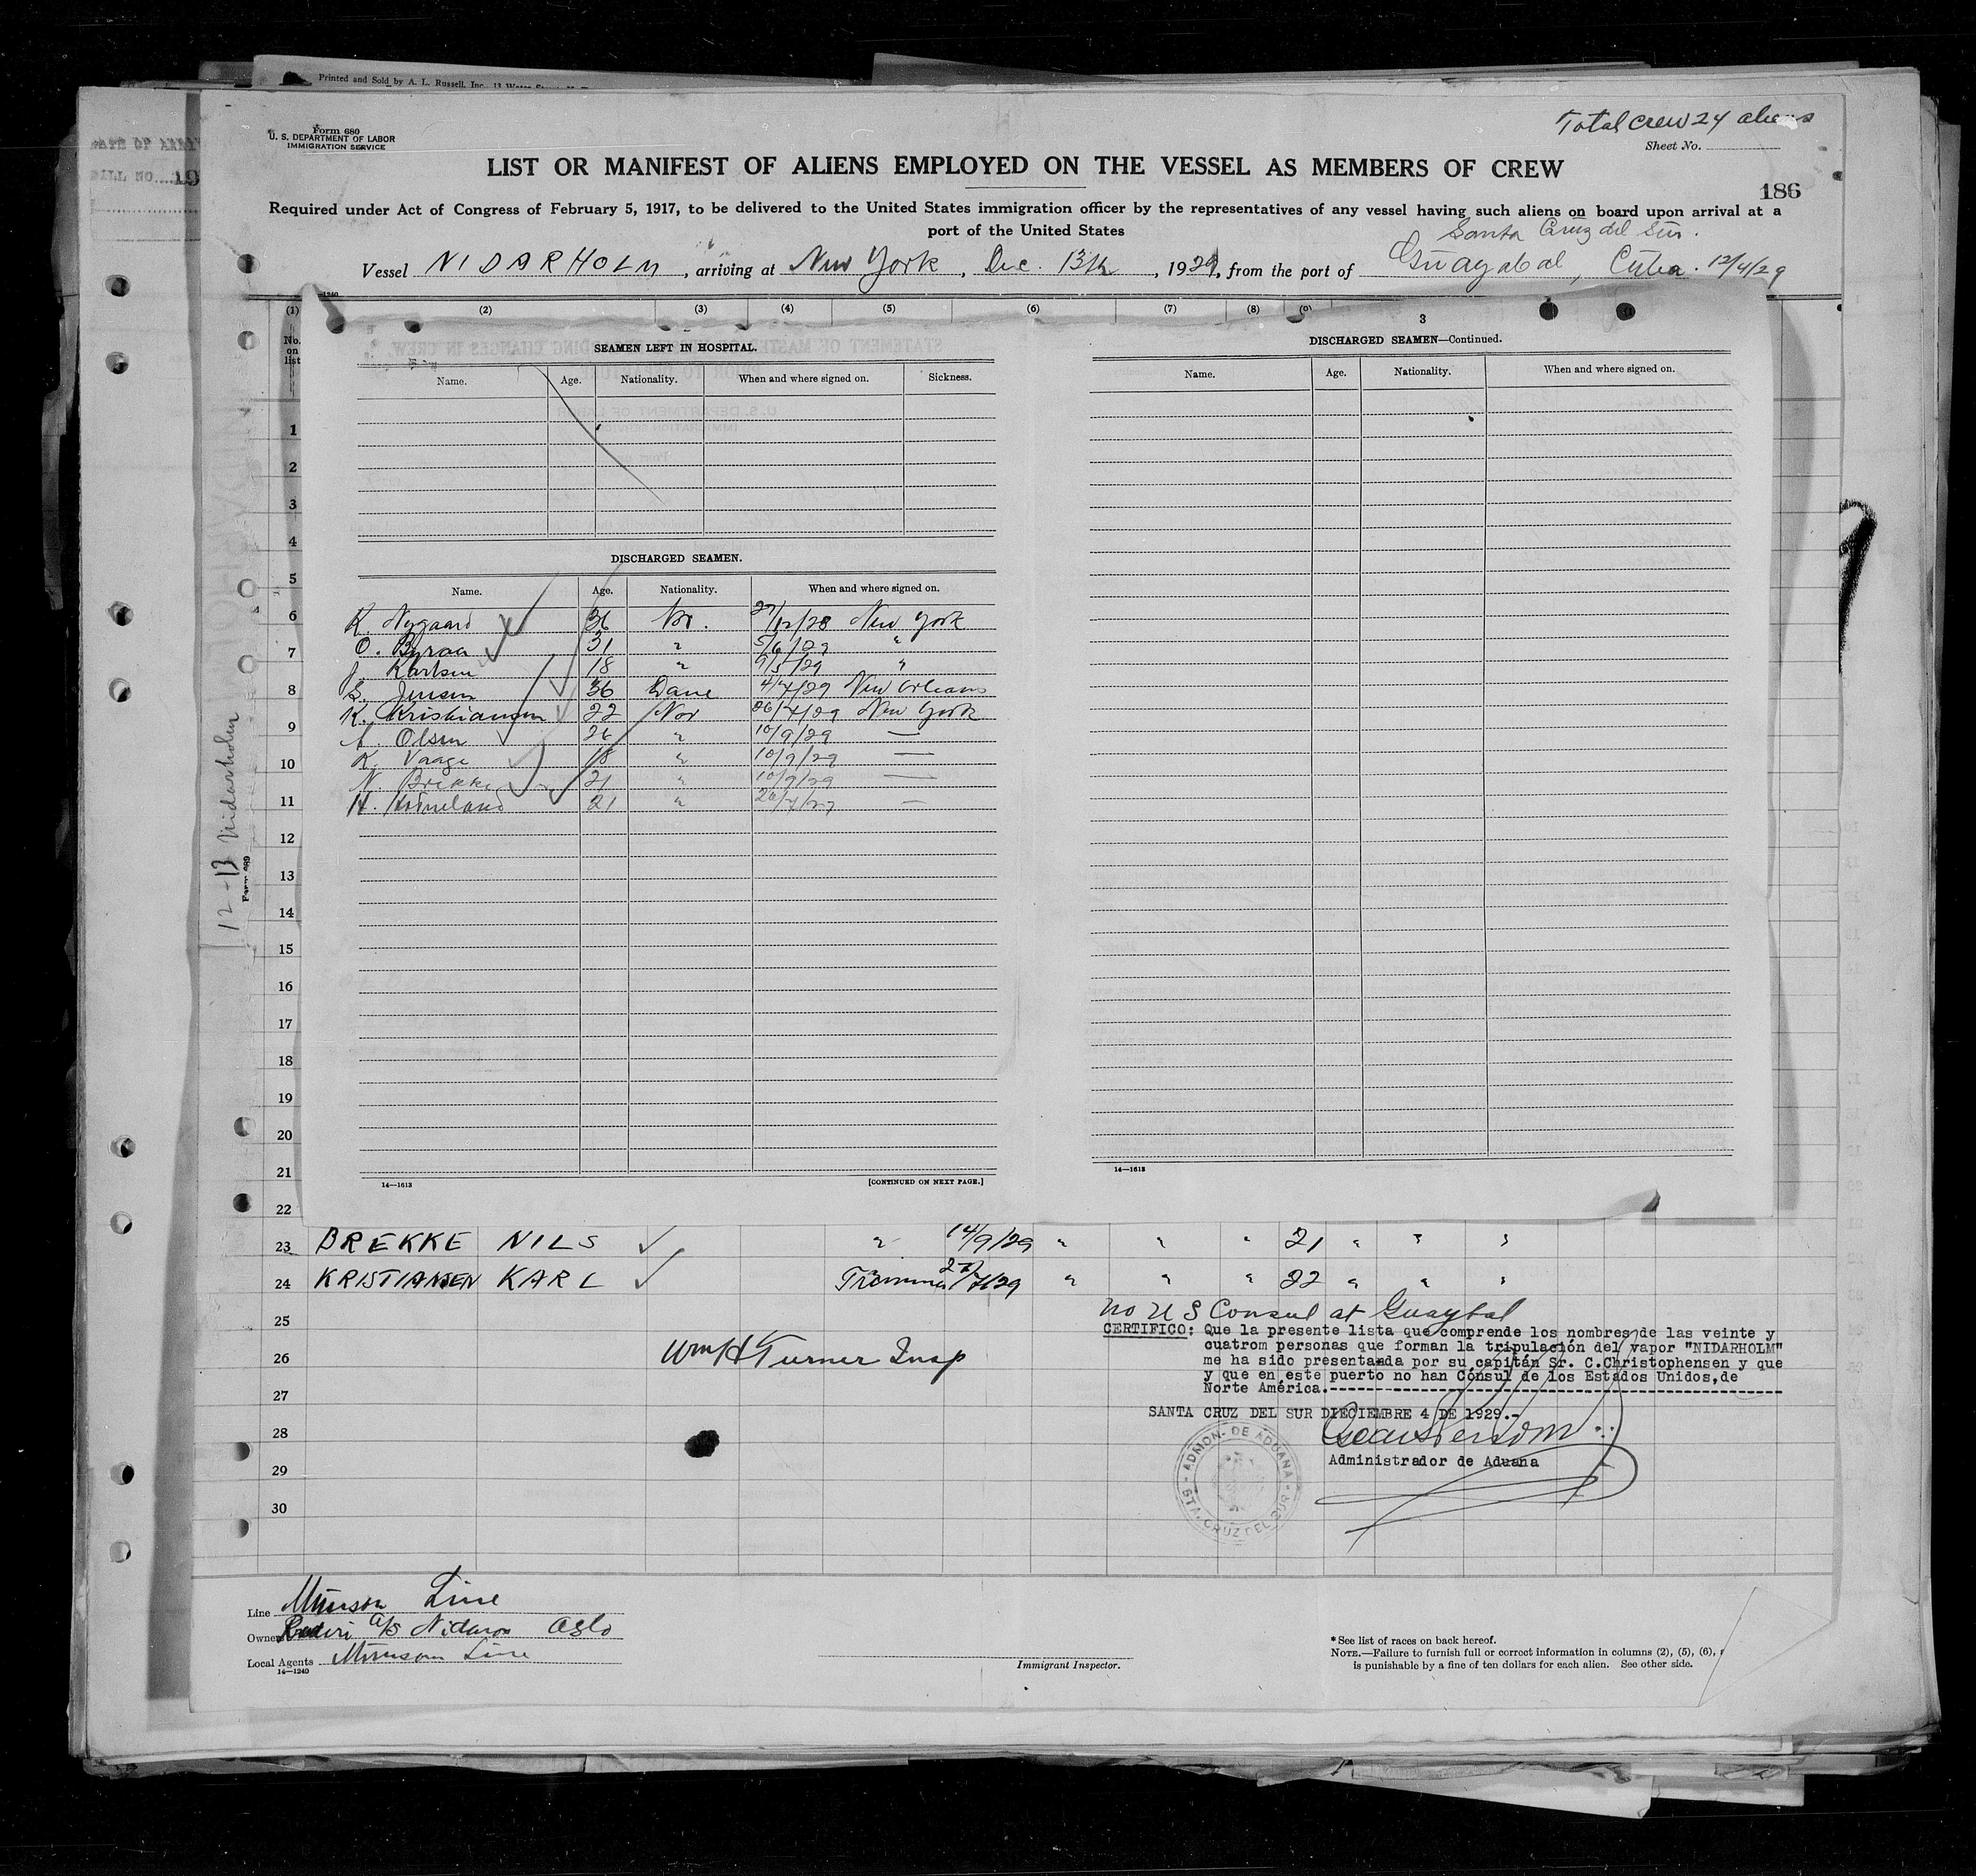 Printed and Sold by A. L. Russell, Inc., 13 Water
Total crew 24 aliens
Form 680
U. S. DEPARTMENT OF LABOR
IMMIGRATION SERVICE
Sheet No.
LIST OR MANIFEST OF ALIENS EMPLOYED ON THE VESSEL AS MEMBERS OF CREW
186
Required under Act of Congress of February 5, 1917, to be delivered to the United States immigration officer by the representatives of any vessel having such aliens on board upon arrival at a
port of the United States
Santa Cruz del Sur.
Vessel NIDARHOLM, arriving at New York, Dec. 13th, 1929, from the port of Guayabal, Cuba. 12/4/29
(1) (2) (3) (4) (5) (6) (7) (8) (9)
No. on list
3
SEAMEN LEFT IN HOSPITAL.
Name. Age. Nationality. When and where signed on. Sickness.
DISCHARGED SEAMEN—Continued.
Name. Age. Nationality. When and where signed on.
DISCHARGED SEAMEN.
Name. Age. Nationality. When and where signed on.
K. Nygaard 36 Nor. 27/12/28 New York
O. 31 " 5/6/29 "
J. Karlsen 18 " 9/5/29 "
S. Jensen 36 Dane 4/4/29 New Orleans
K. Kristiansen 22 Nor 26/4/29 New York
Olsen 26 " 10/9/29 —
K. Vaage 18 " 10/9/29 —
N. Brekke 21 " 10/9/29 —
H. 21 " —
14—1613
[CONTINUED ON NEXT PAGE.]
14—1613
1
2
3
4
5
6
7
8
9
10
11
12
13
14
15
16
17
18
19
20
21
22
12-13 Nidarholm
Form 689
23 BREKKE NILS " 14/9/29 " " " 21 " " "
24 KRISTIANSEN KARL Trimmer 27/4/29 " " " 22 " " "
25
26
27
28
29
30
No U S Consul at Guaybal
CERTIFICO: Que la presente lista que comprende los nombres de las veinte y
cuatrom personas que forman la tripulación del vapor "NIDARHOLM"
me ha sido presentada por su capitán Sr. C.Christophensen y que
y que en este puerto no han Cónsul de los Estados Unidos,de
Norte América.
Wm H Turner Insp
SANTA CRUZ DEL SUR DIECIEMBRE 4 DE 1929.-
Administrador de Aduana
ADMON. DE ADUANA
STA. CRUZ DEL SUR
Line Munson Line
Owners Rederi A/S Nidaros Oslo
Local Agents Munson Line
14—1240
Immigrant Inspector.
* See list of races on back hereof.
NOTE.—Failure to furnish full or correct information in columns (2), (5), (6),
is punishable by a fine of ten dollars for each alien. See other side.